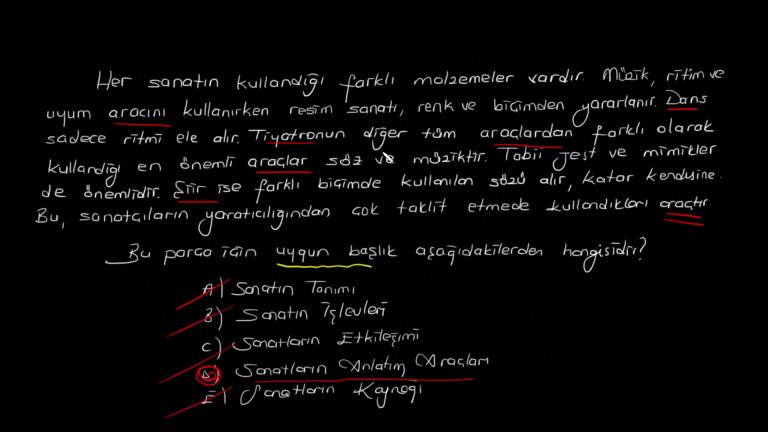 Her sanatın kullandığı farklı malzemeler vardır. Müzik, ritim ve
uyum aracını kullanırken resim sanatı, renk ve biçimden yararlanır. Dans
sadece ritmi ele alır. Tiyatronun diğer tüm araçlardan farklı olarak
kullandığı en önemli araçlar söz ve müziktir. Tabii jest ve mimikler
de önemlidir. Şiir ise farklı biçimde kullanılan sözü alır, katar kendisine.
Bu, sanatçıların yaratıcılığından çok taklit etmede kullandıkları araçtır.
Bu parça için uygun başlık aşağıdakilerden hangisidir?
A) Sanatın Tanımı
B) Sanatın İşlevleri
C) Sanatların Etkileşimi
D) Sanatların Anlatım Araçları
E) Sanatların Kaynağı